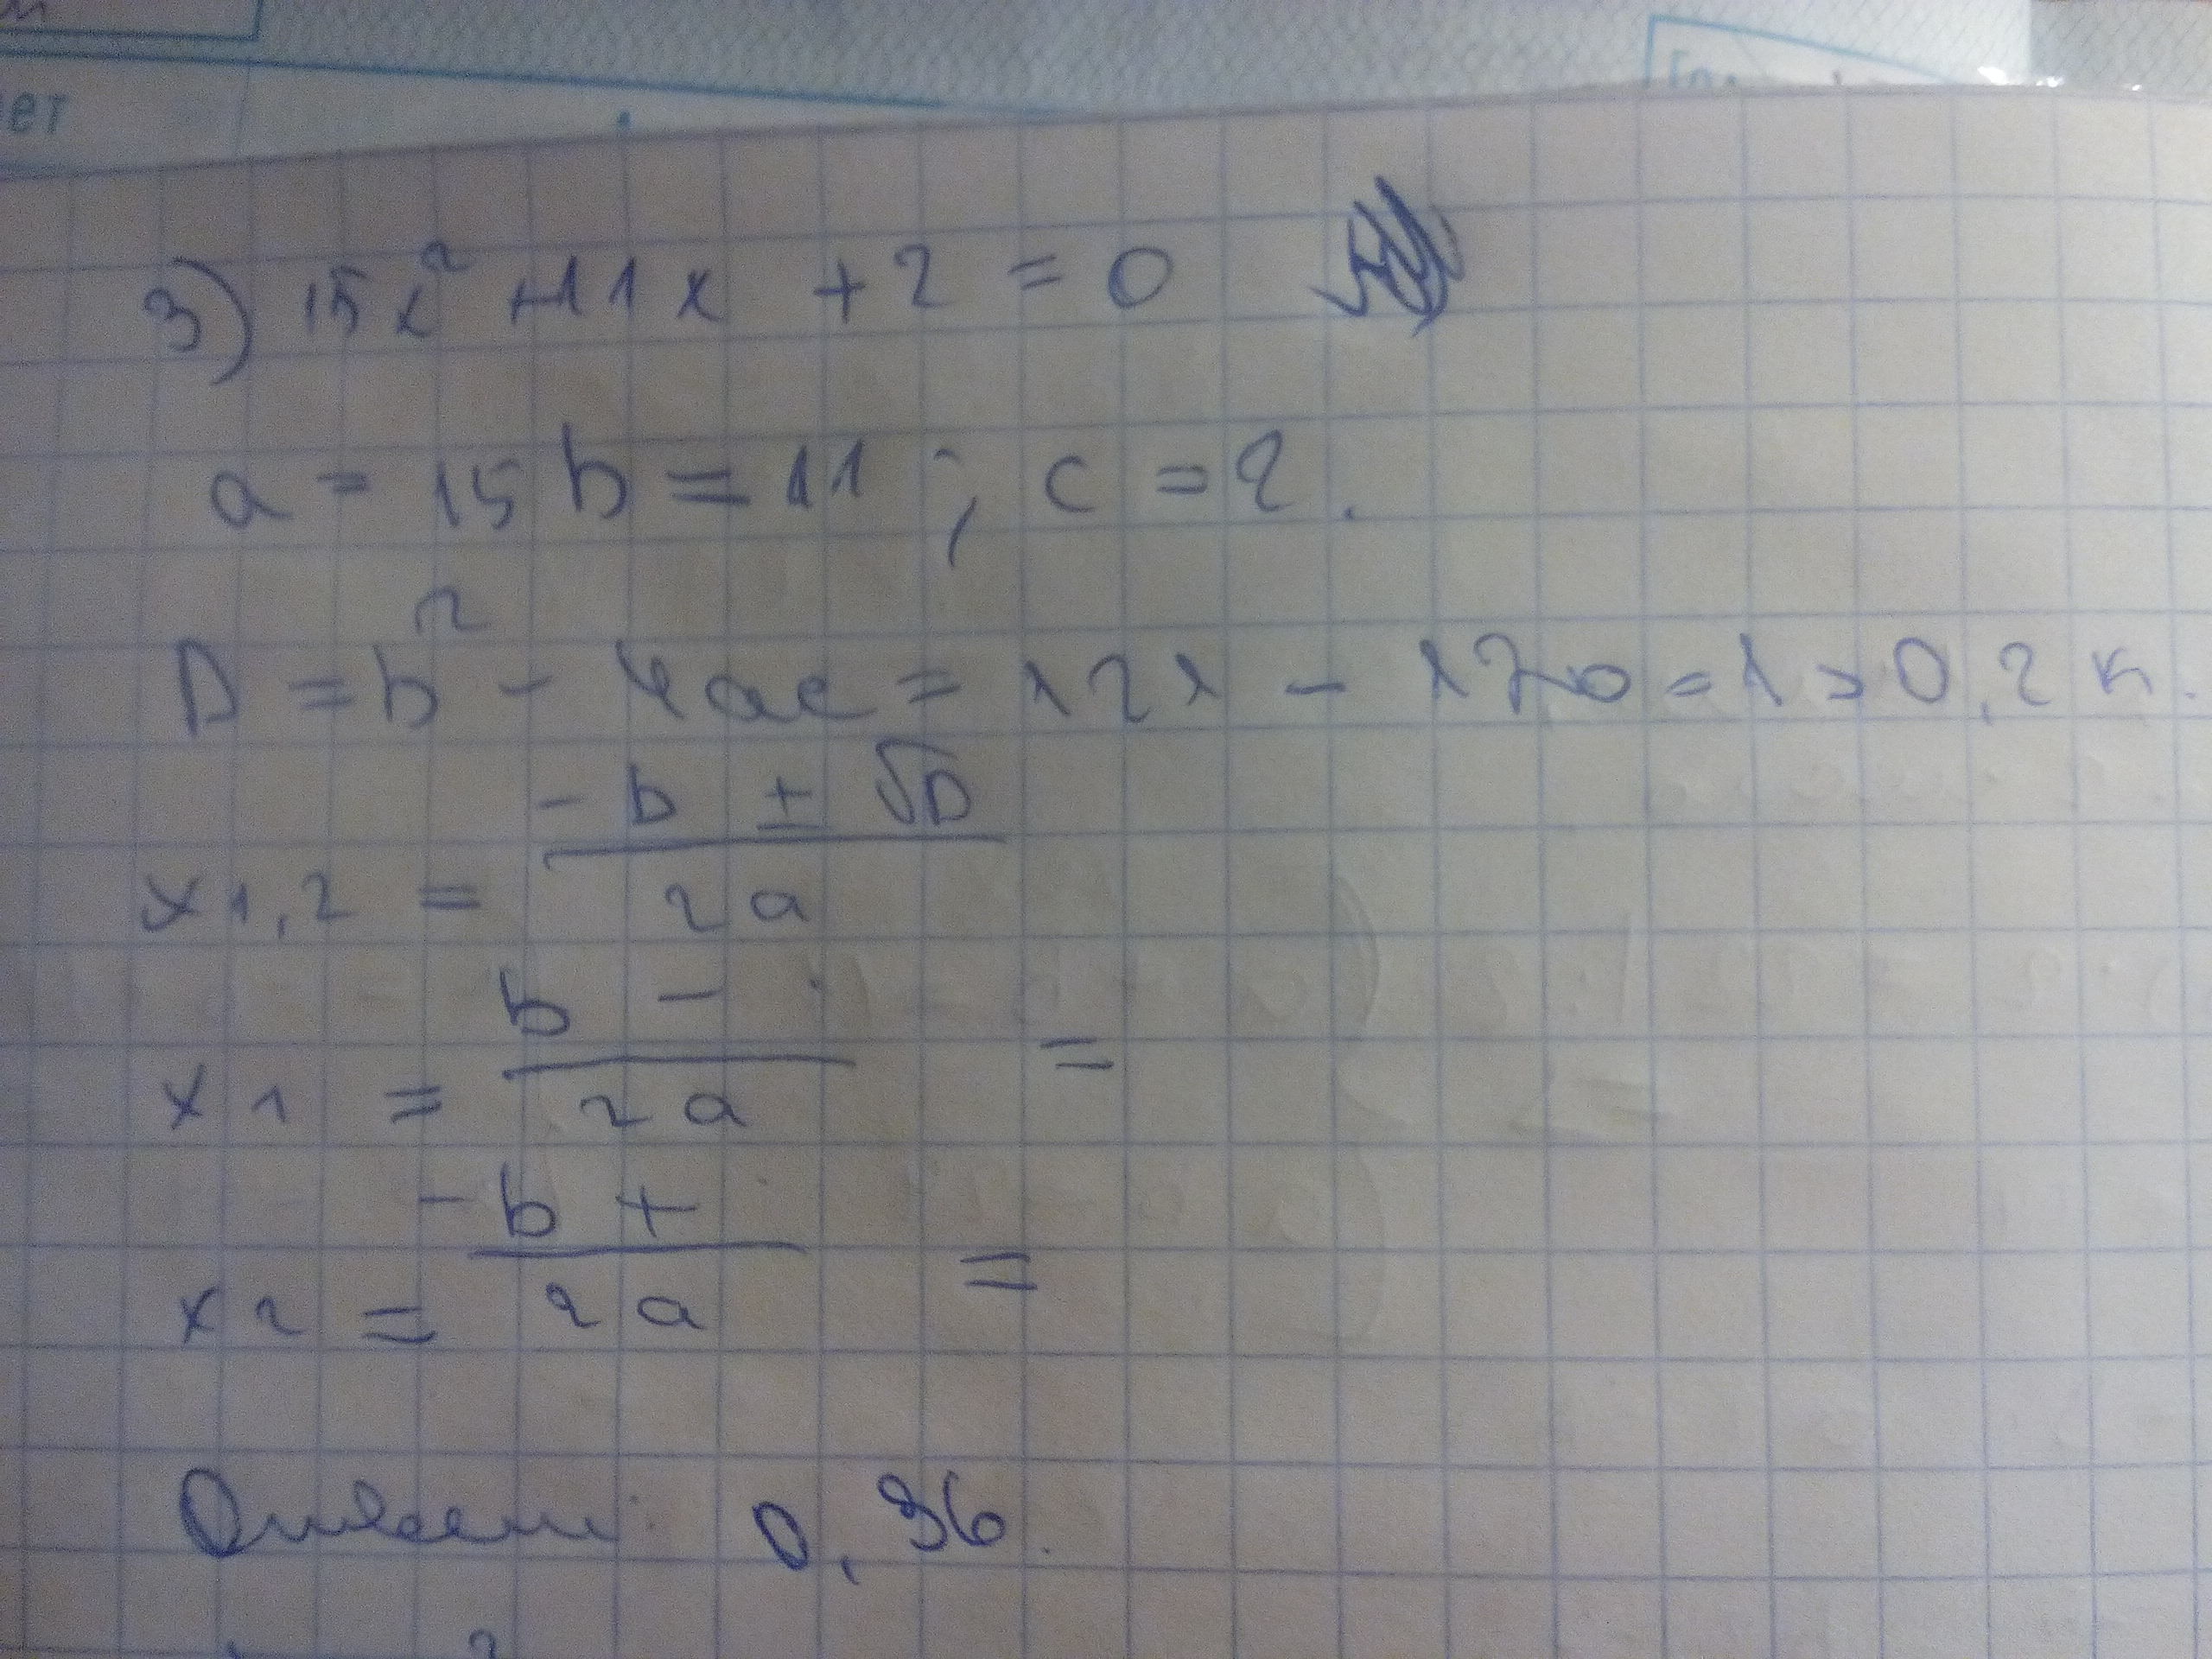 ет
3) 15x² + 11x + 2 = 0
a = 15 b = 11 ; c = 2.
D = b² - 4ac = 121 - 120 = 1 > 0, 2 к.
x1,2 = (-b ± √D) / 2a
x1 = (b -) / 2a =
x2 = (-b +) / 2a =
Ответ: 0,36.